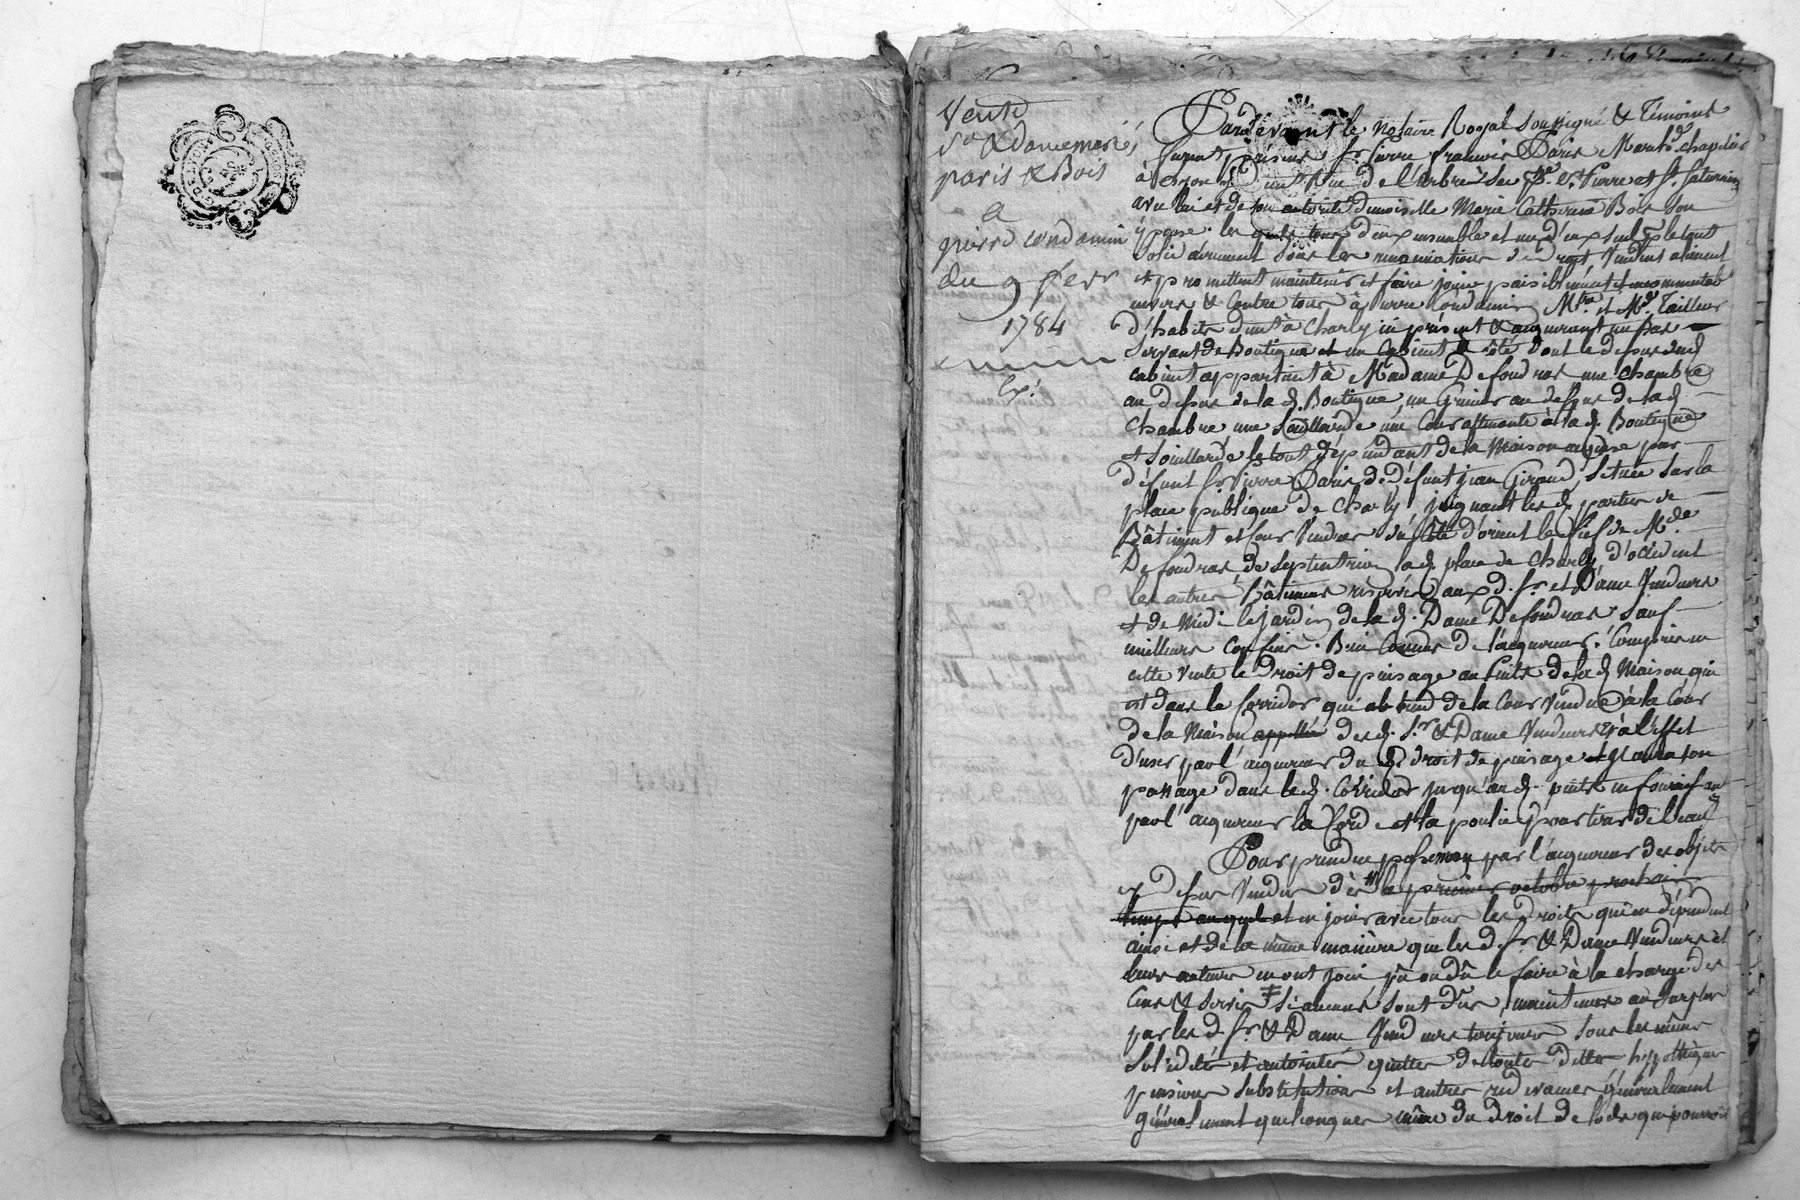 Vente
Sr & Dame mariés
paris & Bois
a
pierre condamin
du 9 fevr
1784
Pardevant le Notaire Royal soussigné & Témoins
furent présens Sr pierre francois Paris Marchd chapelier
à Lyon y dmt Rue de l'arbre sec psse St pierre et St Saturnin
avec lui et de son autorité demoiselle Marie Catherine Bois son
épouse. lesquels tous deux ensemble et un d'eux seul pr le tout
solidairement sous les renonciations de droit vendent aliénent
et promettent maintenir et faire jouir paisiblement et
envers & contre tous à pierre Condamin Mtre et Md Tailleur
d'habits dmt à Charly ici présent & acquerant un Bas
servant de Boutique et un cabinet à côté dont le dessus dud
cabinet appartient à Madame Defoudras une chambre
au dessus de la d. Boutique, un Grenier au dessus de la d
chambre une souillarde, une Cour attenante à la d. Boutique
et souillarde le tout dépendant de la Maison acquise par
défunt Sr pierre Paris de défunt jean Giraud, située sur la
place publique de Charly, joignant les d parties de
Bâtiment et Cour vendues du côté d'orient le fief de Mde
Defoudras, de septentrion la d place de Charly d'occident
les autres Bâtimens réservés aux d. Sr et Dame vendeurs
et de Midi le jardin de la d. Dame Defoudras sauf
meilleurs confins. Bien connus de l'acquereur. Compris en
cette vente le droit de puisage au puits de la d Maison qui
est dans le corridor qui ab tend de la Cour vendue à la Cour
de la Maison des d. Sr & Dame vendeurs & à l'effet
d'user par l'acquereur du d. droit de puisage il aura son
passage dans le d. Corridor jusqu'au d. puits en fournissant
par l'acquereur la Corde et la poulie pour tirer de l'eau
Pour prendre possession par l'acquereur des objets
cy dessus vendus dès le premier octobre prochain
temps auquel et en jouir avec tous les droits qui en dépendent
ainsi et de la même manière que les d. Sr & Dame vendeurs et
leurs auteurs en ont joui pû ou dû le faire à la charge des
Cens & servis si aucuns sont dus, maintenus au surplus
par les d. Sr & Dame vendeurs toujours sous les mêmes
solidités et autorités quittes de toutes dettes hypothèques
pensions substitutions et autres redevances généralement
généralement quelconques même du droit de lods qui pourroit